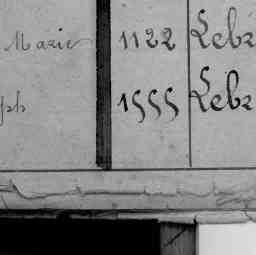 Marie 1122 Lebr
ph 1555 Lebr